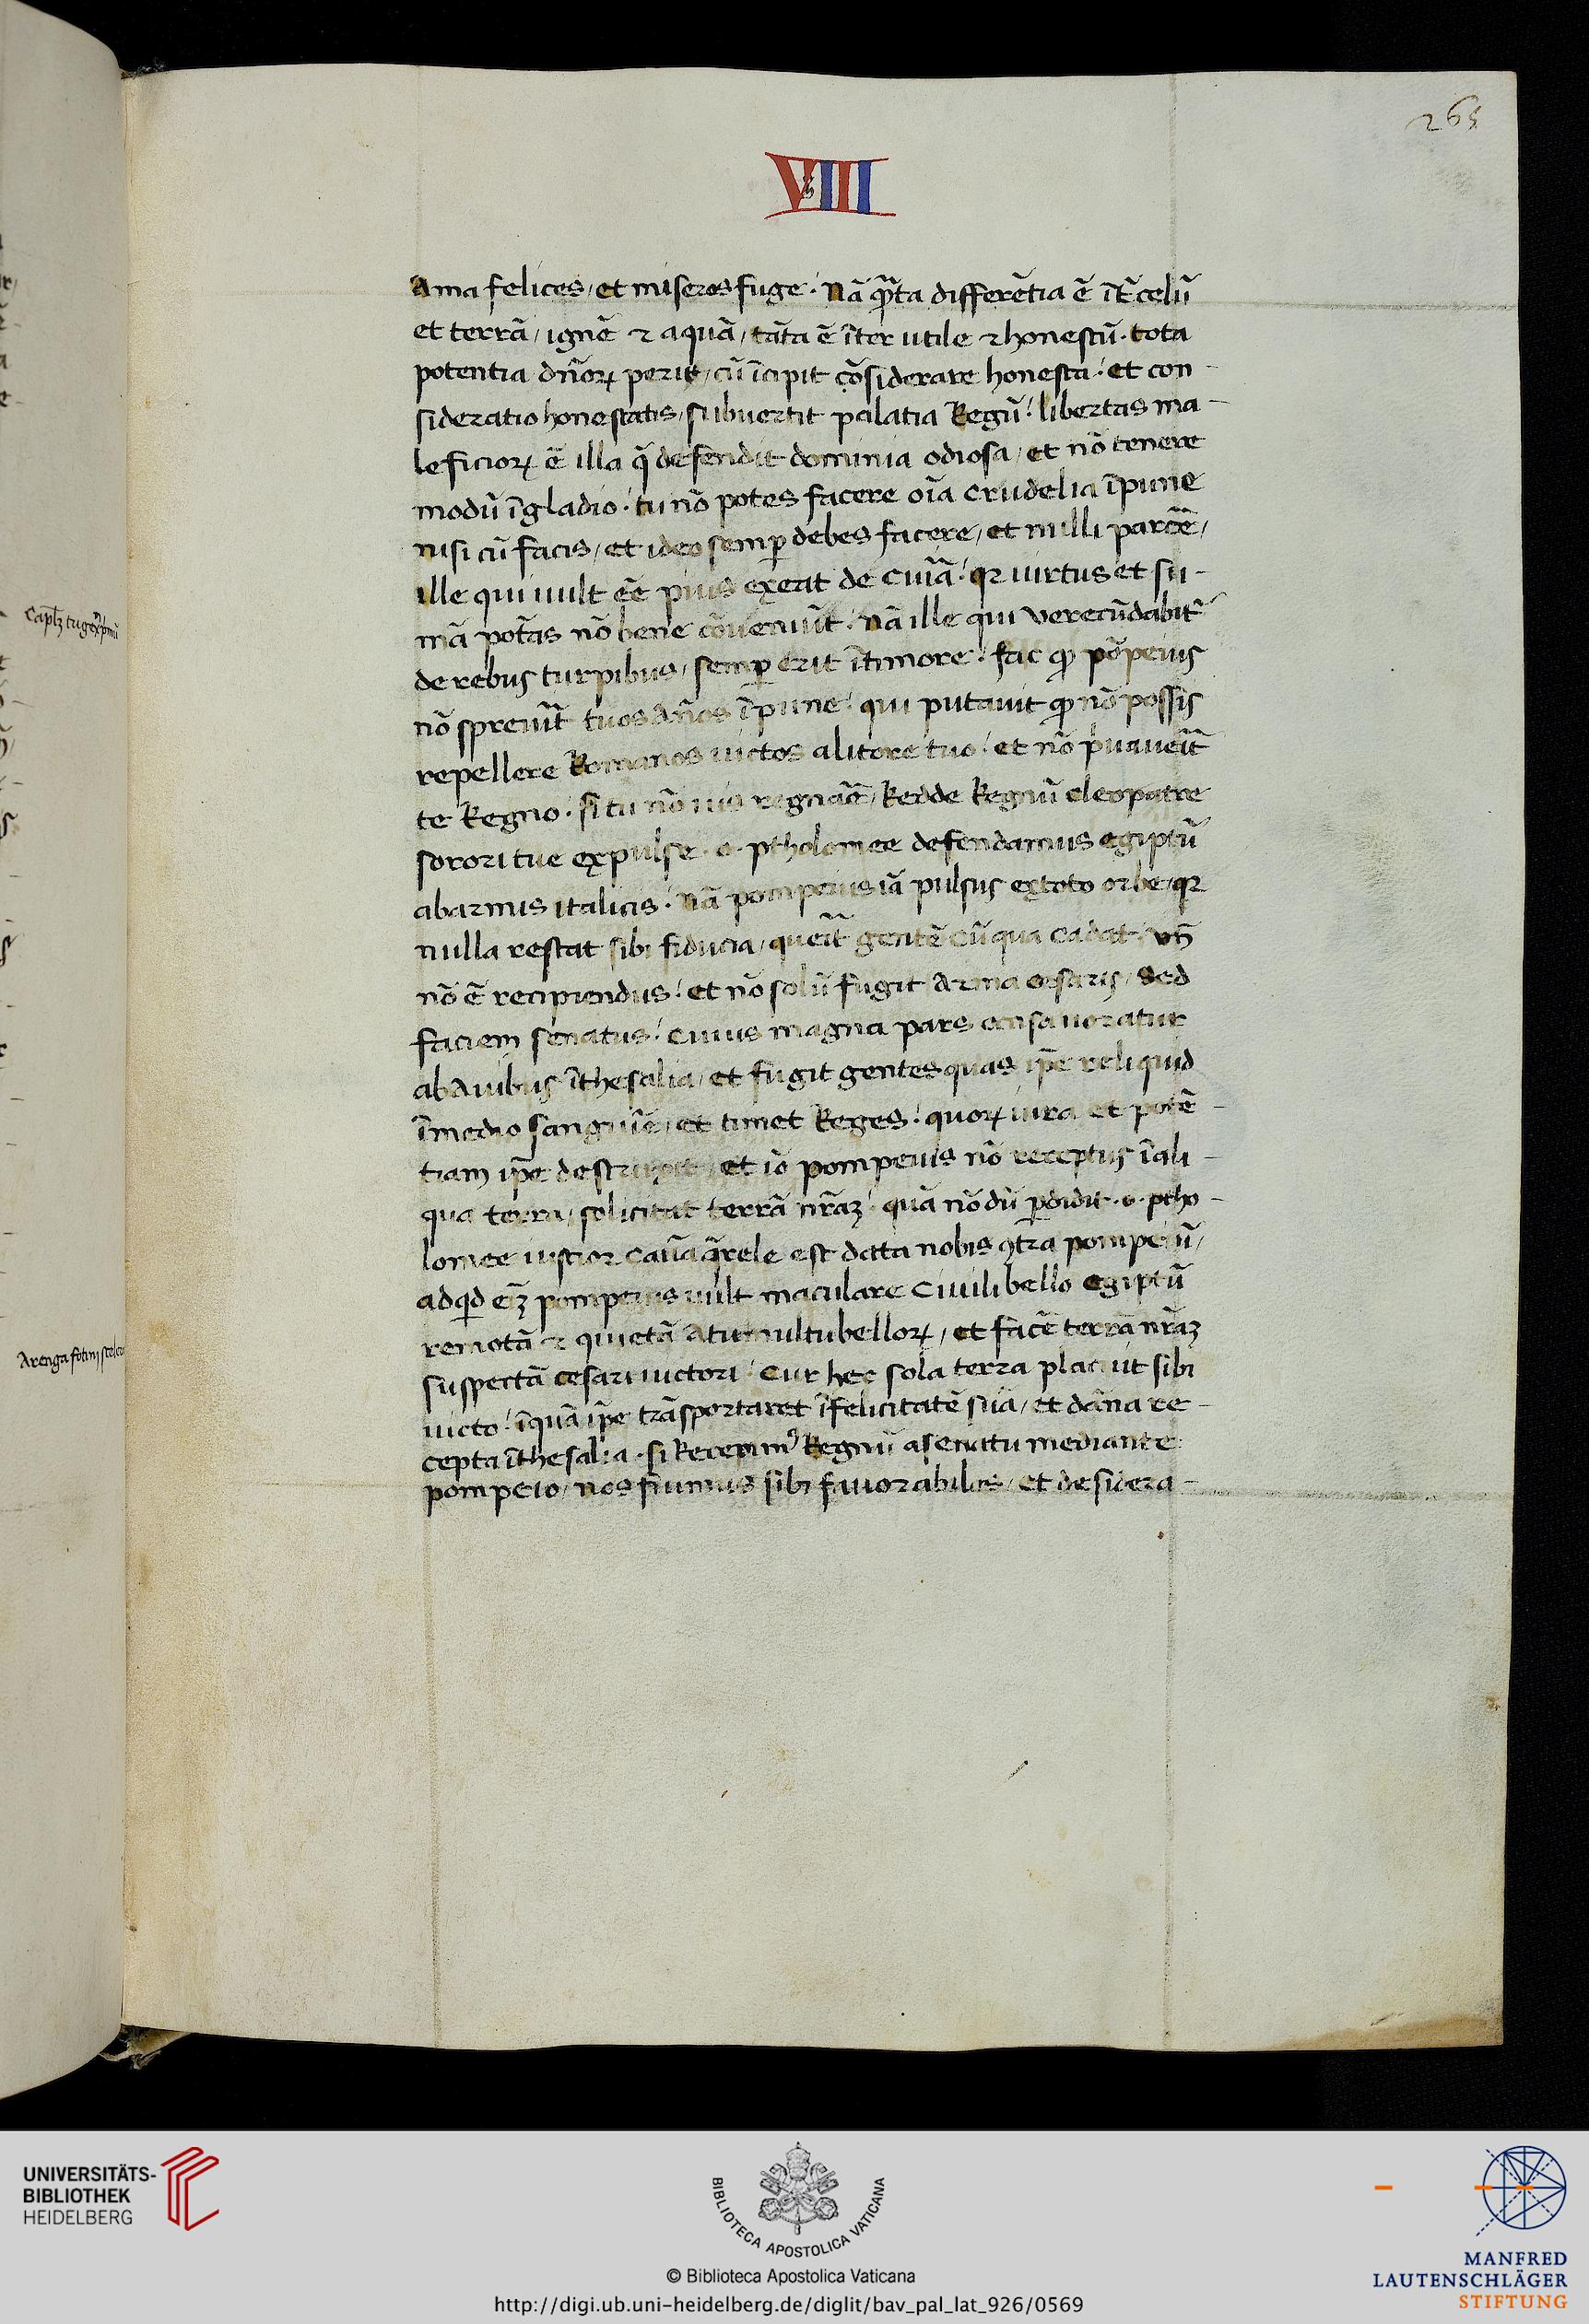 265
VIII
Ama felices / et miseros fuge : nā q̄ta differētia ē īt̄ celū
et terrā / ignē ⁊ aquā / tāta ē īter utile ⁊ honestū · tota
potentia dn̄oꝝ perit / cū īcipit cōsiderare honesta : et con-
sideratio honestatis / subuertit palatia Regū : libertas ma-
leficioꝝ ē illa q̄ defendit dominia odiosa / et nō tenere
modū ī gladio : tu nō potes facere oīa crudelia īpune
nisi cū facis / et ideo semꝑ debes facere / et nulli parcē /
ille qui uult eē pius exeat de cuiā : qꝛ uirtus et su-
mā potās nō bene cōueniūt : nā ille qui verecūdabit̄
de rebus turpibus / semꝑ erit ī timore : fac ꝙ pōpeius
nō spreuīt tuos Ānos īpune : qui putauit ꝙ nō possis
repellere Romanos uictos a litore tuo : et nō pͥuaueīt
te Regno · si tu nō uis regnāe / Redde Regnū cleopatre
sorori tue expulse · o · ptholomee defendamus egiptū
ab armis italicis : nā pompeius iā pulsus ex toto orbe / qꝛ
nulla restat sibi fiducia / queīt gentē cū qua cadat / vn̄
nō ē recipiendus : et nō solū fugit Arma cesaris / Sed
faciem senatus : cuius magna pars occisa uoratur
ab Auibus ī thesalia / et fugit gentes quas ip̄e reliquid
ī medio sanguīe / et timet Reges : quoꝝ iura et potē-
tiam ip̄e destruxit / et iō pompeius nō receptus ī ali-
qua terra / solicitat terrā nr̄aꝫ : quā nōdū ꝑdidit · o · ptho-
lomee iustior cauā q̄rele est data nobis ꝯtra pompeiū /
ad qͥd eīꝫ pompeius uult maculare Ciuili bello egiptū
remotā ⁊ quietā A tumultu belloꝝ / et facē terrā nr̄aꝫ
suspectā cesari uictori : Cur hec sola terra placuit sibi
uicto : ī quā ip̄e trāsportaret īfelicitatē suā / et dāna re-
cepta ī thesalia · si Recepimꝰ Regnū a senatu mediante
pompeio / nos fuimus sibi fauorabiles / et desidera-
UNIVERSITÄTS-
BIBLIOTHEK
HEIDELBERG
BIBLIOTECA APOSTOLICA VATICANA
© Biblioteca Apostolica Vaticana
http://digi.ub.uni-heidelberg.de/diglit/bav_pal_lat_926/0569
MANFRED
LAUTENSCHLÄGER
STIFTUNG